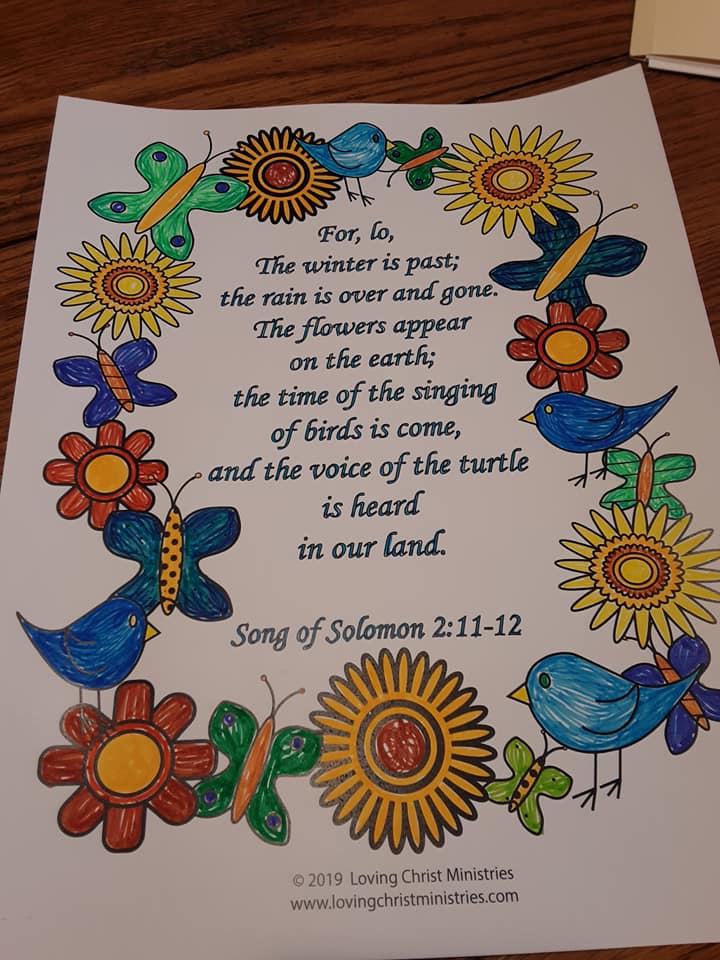 For, lo,
The winter is past;
the rain is over and gone.
The flowers appear
on the earth;
the time of the singing
of birds is come,
and the voice of the turtle
is heard
in our land.
Song of Solomon 2:11-12
© 2019 Loving Christ Ministries
www.lovingchristministries.com